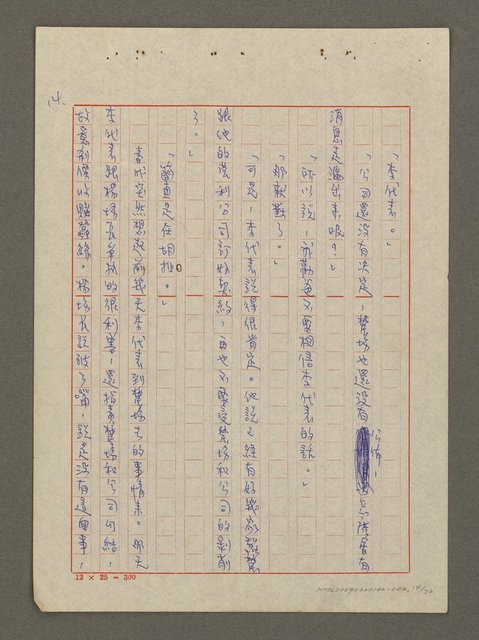 14.
「李代表。」
「公司還沒有決定,農場也還沒有公佈,怎麼會有
消息走漏出來呢?」
「所以說,我勸爸不要相信李代表的話。」
「那就對了。」
「可是,李代表說得很肯定。他說已經有好幾家
跟他的營利公司訂好契約,再也不要受農場和公司的剝削
了。」
「簡直是在胡扯。」
突然想起前幾天李代表到農場去的事情來。那天
李代表跟楊場長爭執的很利害。還指責農場和公司勾結,
故意剝價收購蠶絲,楊場長說破了嘴,說是沒有這回事,
12 × 25 = 300